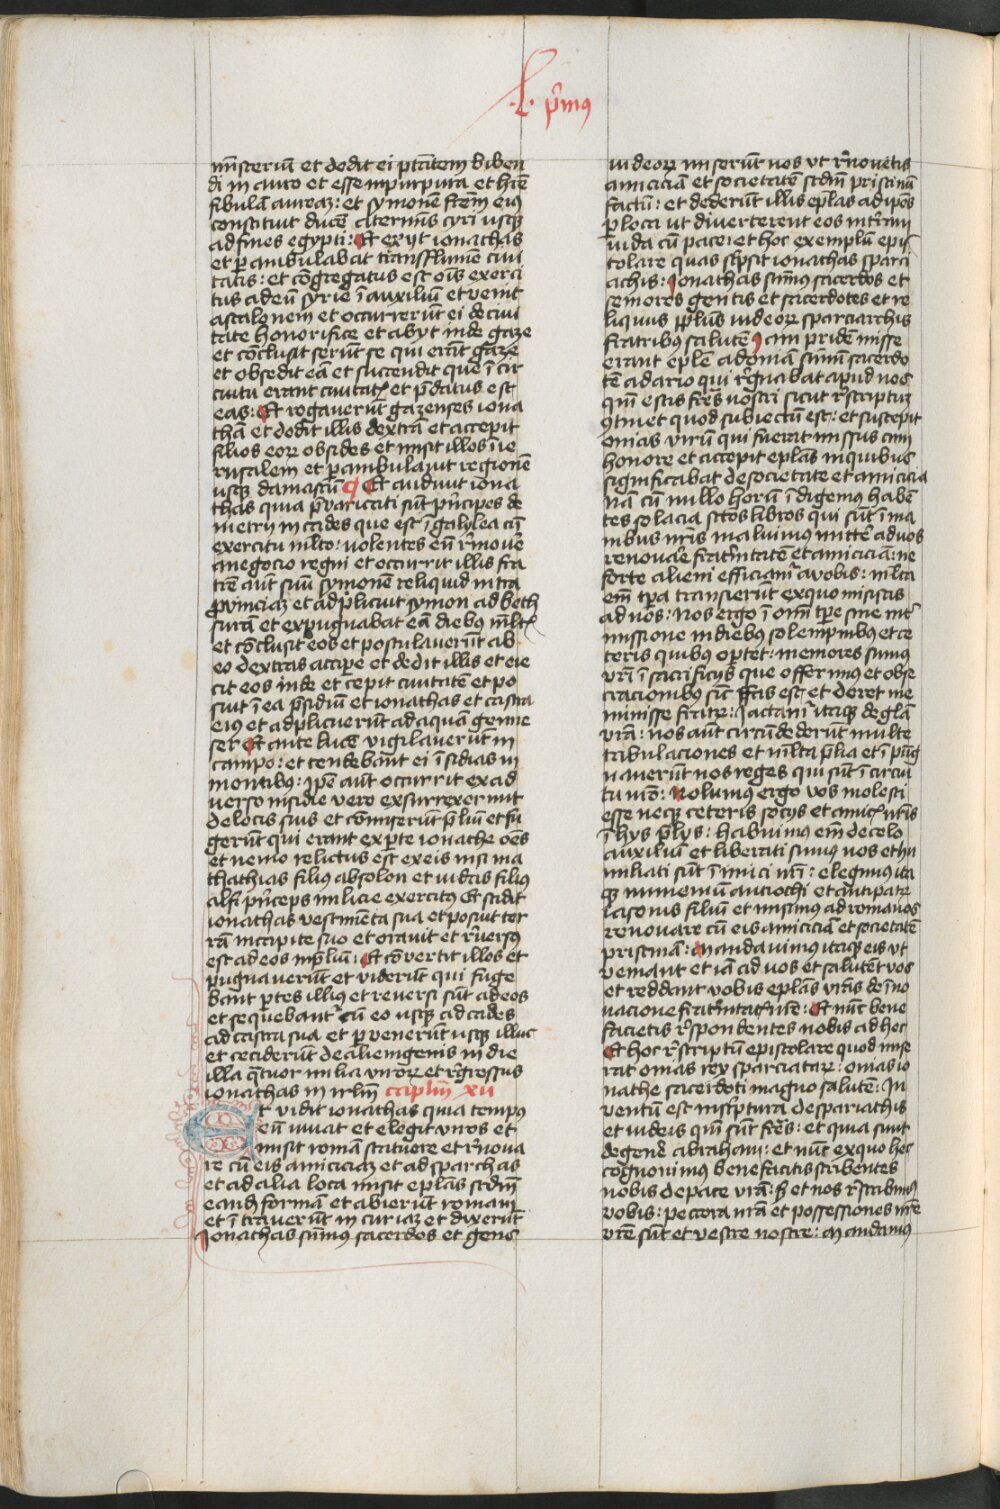 .L. p̄mꝯ
mīsteriū et dedit ei ptātem biben
di in auro et esse in purpura et hr̄e
fibulam aureaz: et symonē frēm eiꝯ
constituit ducē a terminis tyri usqꝫ
ad fines egypti: Et exiit ionathas
et ꝑambulabat trans flumē civi
tatis: et congregatus est oīs exerci
tus ad eū syrie ī auxiliū et venit
ascalonem et occurrerūt ei de civi
tate honorifice et abyt inde gaze
et cōclusserūt se qui erāt gaze
et obsedit eā et succendit que ī cir
cuitu erant civitatꝭ et p̄datus est
eas: Et rogaverūt gazenses iona
thā et dedit illis dextrā et accepit
filios eorꝝ obsides et misit illos ī ie
rusalem et ꝑambulavit regionē
usqꝫ damascū Et audivit iona
thas quia p̄varicati sūt p̄ncipes de
metrij in cades que est ī galylea cū
exercitu mlto: volentes eū r̄movē
a negocio regni et occurrit illis fra
trē aūt suū symonē reliquid intra
provinciaz et adplicuit symon ad beth
surā et expugnabat eā diebꝯ mltꝭ
et cōclusit eos et postulaverūt ab
eo dextras accipē et dedit illis et eie
cit eos inde et cepit civitatē et po
suit ī ea p̄sidiū et ionathas et castra
eiꝯ et adplicuerūt ad aquā genne
ser Et ante lucē vigilaverūt in
campo: et tendebant ei īsidias in
montibꝯ: ip̄e aūt occurrit ex ad
verso insidie vero exsurrexerunt
de locis suis et cōmiserūt p̄liū et fu
gerūt qui erant ex ꝑte ionathe oēs
et nemo relictus est ex eis nisi ma
thathias filius absolon et iudas filius
alfi p̄nceps milicie exercitꝯ Et scidit
ionathas vestimēta sua et posuit ter
rā in capite suo et oravit et r̄versꝯ
est ad eos in p̄liū: Et cōvertit illos et
pugnaverūt et viderūt qui fuge
bant ꝑtes illius et reversi sūt ad eos
et sequebant̄ cū eo usqꝫ ad cades
ad castra sua et ꝑvenerūt usqꝫ illuc
et ceciderūt de alienigenis in die
illa q̄tuor milia virorꝝ et r̄gressus
ionathas in irlm̄ caplm̄ xii
Et vidit ionathas quia tempꝯ
eū iuvat et elegit viros et
misit romā statuere et r̄nova
re cū eis amiciciaz et ad sparchas
et ad alia loca misit eplas scdm̄
eand formā et abierūt romam
et ītraverūt in curiaz et dixerūt
Ionathas sūmus sacerdos et gens
iudeorꝝ miserūt nos ut r̄novetis
amiciciā et societatē scdm̄ pristinū
factū: et dederūt illis eplas ad ipos
ꝑ loca ut diverterent eos in t̄ram
iuda cū pace: et hoc exemplū epis
tolare quas sc̄psit ionathas sparci
achis: Ionathas sūmus sacerdos et
seniores gentis et sacerdotes et re
liquus pplus iudeorꝝ sparciarchis
fratribꝯ salutē Iam pridē misse
erant eple ad oniam sūmū sacerdo
tē a dario qui r̄gnabat apud nos
qm̄ estis fr̄es nostri sicut r̄scriptuz
ꝯtinet quod subiectū est: et suscepit
onias virū qui fuerat missus cum
honore et accepit eplas in quibus
significabat de societate et amicicia
nā cū nullo horū īdigemus habē
tes solacia sctos libros qui sūt ī ma
nibus nr̄is maluimus mitt̄e ad uos
renovāe frat̄nitatē et amiciciā: ne
forte alieni efficiam̄ a vobis: mlta
em̄ tꝑa transierūt ex quo misistis
ad nos: Nos ergo ī om̄i tꝑe sine int̄
missione in diebꝯ solempnibꝯ et ce
teris quibꝯ oportet: memores sumꝯ
vr̄i ī sacrificijs que offerimꝯ et obse
cracionibꝯ sic̄ fas est et decet me
minisse fratrꝝ: Letam̄ itaqꝫ de glā
vrā: nos aūt circūdederūt multe
tribulaciones et mlta p̄lia et īpug
naverūt nos reges qui sūt ī circui
tu nr̄o: Nolumꝯ ergo vos molesti
esse neqꝫ ceteris socijs et amicꝭ nr̄is
ī hijs p̄lijs: habuimꝯ em̄ de celo
auxiliū et liberati sumꝯ nos et hu
miliati sūt īimici nr̄i: elegimꝯ ita
qꝫ numeniū antiochi et antipatrꝝ
iasonis filium et misimꝯ ad romanos
renovare cū eis amiciciā et societatē
pristinā: Mandavimꝯ itaqꝫ eis ut
veniant et iā ad vos et salutēt vos
et reddant vobis eplas vr̄as de īno
vacione frat̄nitatꝭ nr̄e: Et nūc bene
facietis r̄spondentes nobis ad hec
Et hoc r̄scriptū epistolare quod mise
rat onias rex sparciatarꝝ: Onias io
nathe sacerdoti magno salutē: In
ventū est in sc̄ptura de spariathis
et iudeis qm̄ sūt fr̄es: et quia sunt
de genē abraham: et nūc ex quo hec
cognovimꝯ benefacitis scribentes
nobis de pace vrā: Sꝫ et nos r̄scribimꝯ
vobis: peccora nr̄a et possessiones nr̄e
vr̄e sūt et vestre nostre: Mandamꝯ